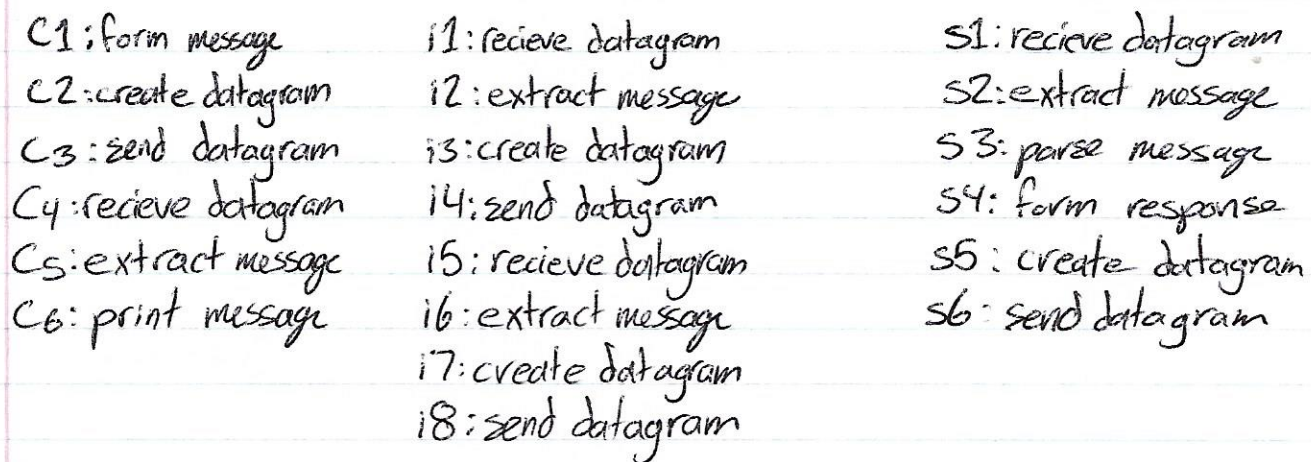 C1: form message
C2: create datagram
C3: send datagram
C4: recieve datagram
C5: extract message
C6: print message
i1: recieve datagram
i2: extract message
i3: create datagram
i4: send datagram
i5: recieve datagram
i6: extract message
i7: create datagram
i8: send datagram
S1: recieve datagram
S2: extract message
S3: parse message
S4: form response
S5: create datagram
S6: send datagram